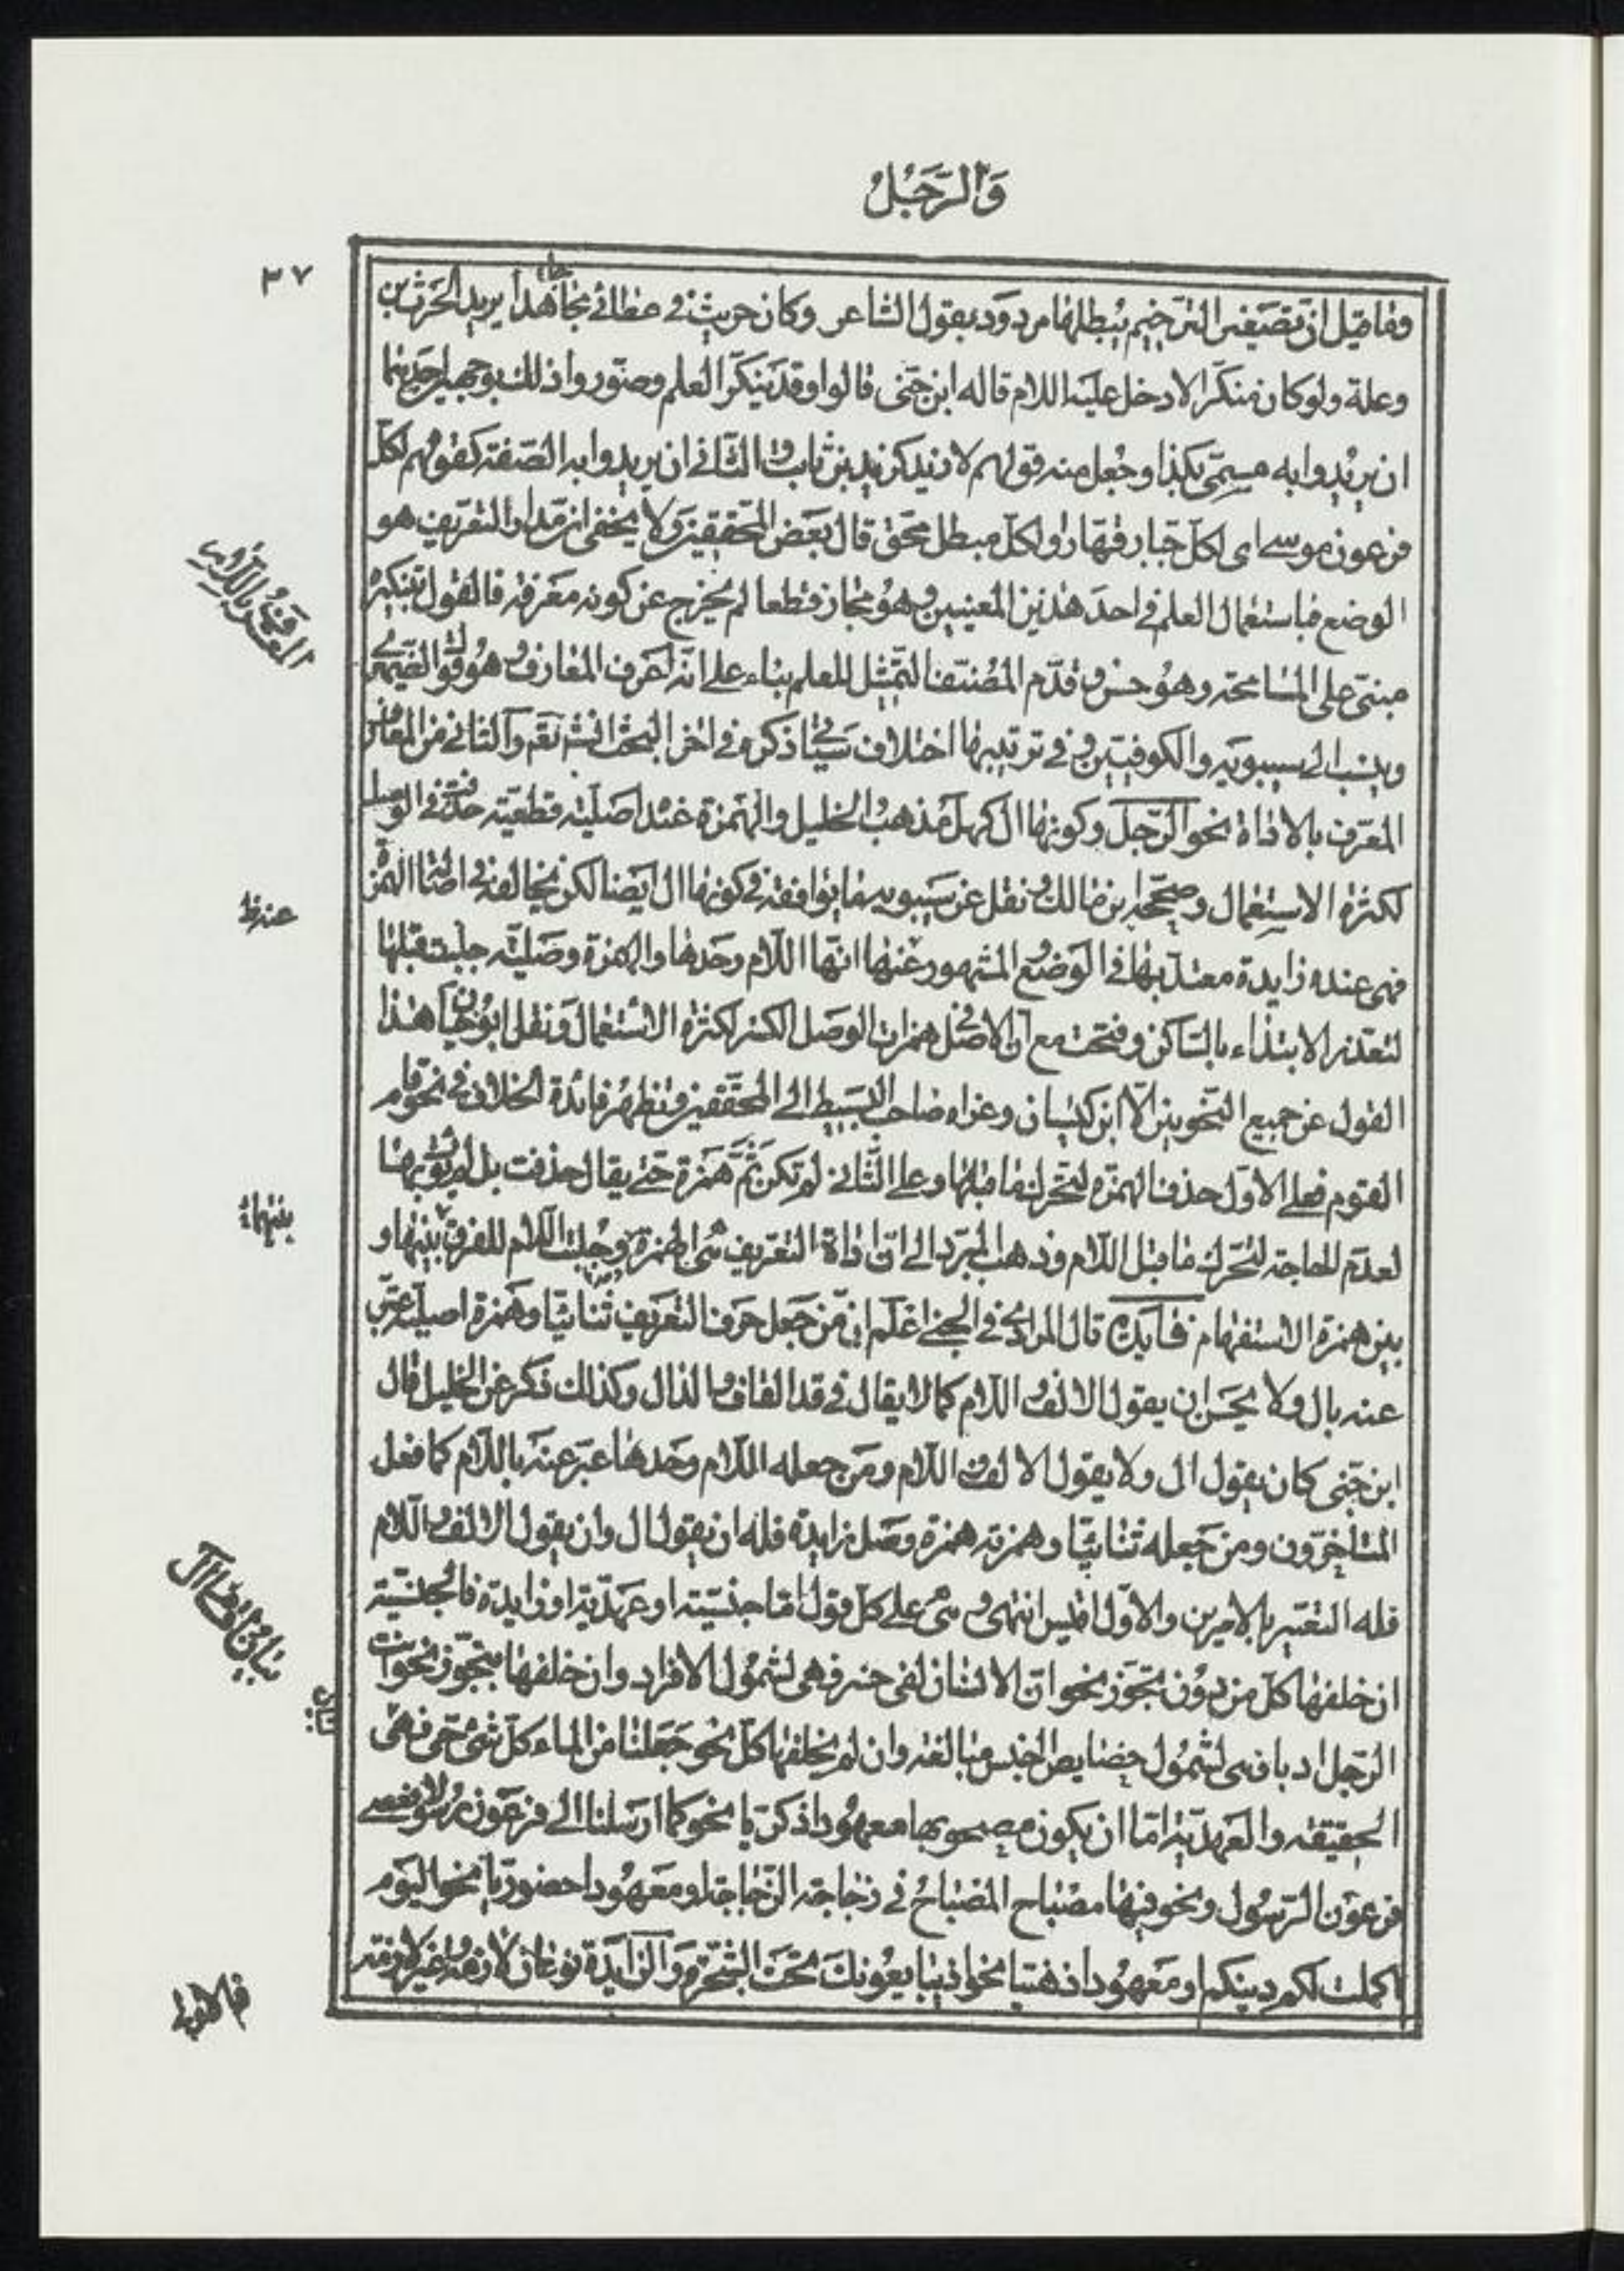 وَالرَّجُلُ
٣٧
وما قيل ان تصغير الترخيم يبطلها مردود بقول الشاعر وكان حريث في عطائي جاهدا يريد الحرث بن
وعلة ولو كان منكرا لادخل عليه اللام قاله ابن جنّى قالوا وقد ينكّر العلم وصوّروا ذلك بوجهين احدهما
ان يريدوا به مسمّى بكذا وجعل منه قولهم لا زيد كزيد بن ثابت والثاني ان يريدوا به الصّفة كقولهم لكلّ
فرعون موسى اى لكلّ جبّار قهّار ولكلّ مبطل محقّ قال بعض المحققين ولا يخفى ان مدار التعريف هو
الوضع فباستعمال العلم في احد هذين المعنيين وهو مجاز قطعا لم يخرج عن كونه معرفة فالقول بتنكيره
مبنىّ على المسامحة وهو حسن وقدّم المصنّف التمثيل للعلم بناء على انّه اعرف المعارف وهو قول الصيمرى
وينسب الى سيبويه والكوفيّين وفي ترتيبها اختلاف سيأتي ذكره في اخر البحث انش تعم والثاني من المعارف
المعرّف بالاداة نحو الرّجل وكونها ال كهل مذهب الخليل والهمزة عنده اصليّة قطعيّة حذفت في الوصل
لكثرة الاستعمال وصحّحه ابن مالك ونقل عن سيبويه ما يوافقه في كونها ال ايضا لكن يخالفه في اصالة الهمزة
فهى عنده زايدة معتدّ بها في الوضع المشهور عنها انّها اللّام وحدها والهمزة وصليّة جلبت قبلها
لتعذر الابتداء بالسّاكن وفتحت مع انّ الاصل في همزات الوصل الكسر لكثرة الاستعمال ونقل ابو حيان هذا
القول عن جميع النّحويين الّا ابن كيسان وعزاه صاحب البسيط الى المحقّقين وتظهر فائدة الخلاف في نحو قام
القوم فعلى الاوّل حذف الهمزة لتحرك ما قبلها وعلى الثّاني لم تكن ثمّ همزة حتى يقال حذفت بل لم يؤت بها
لعدم الحاجة لتحرّك ما قبل اللّام وذهب المبرّد الى انّ اداة التعريف هى الهمزة وجلبت اللّام للفرق بينها و
بين همزة الاستفهام فايدة قال المرادي في الجنى اعلم انّ من جعل حرف التعريف ثنائيّا وهمزة اصليّة عبّر
عنه بال ولا يحسن ان يقول الالف واللّام كما لا يقال في قد القاف والدال وكذلك ذكر عن الخليل قال
ابن جنّى كان يقول ال ولا يقول الالف واللام ومن جعله اللام وحدها عبّر عنه باللّام كما فعل
المتاخّرون ومن جعله ثنائيّا وهمزته همزة وصل زايدة فله ان يقول ال وان يقول الالف واللّام
فله التعبير بالامرين والاوّل اقيس انتهى وهى على كلّ قول امّا جنسيّة او عهديّة او زايدة فالجنسيّة
ان خلفها كلّ من دون تجوّز نحو انّ الانسان لفى خسر فهى لشمول الافراد وان خلفها بتجوّز نحو انت
الرّجل ادبا فهى لشمول خصايص الجنس مبالغة وان لم يخلفها كلّ نحو جعلنا من الماء كلّ شئ حىّ فهى
الحقيقة والعهديّة امّا ان يكون مصحوبها معهودا ذكريّا نحو كما ارسلنا الى فرعون رسولا فعصى
فرعون الرّسول ونحو فيها مصباح المصباح في زجاجة الزّجاجة او معهودا حضوريّا نحو اليوم
اكملت لكم دينكم او معهودا ذهنيا نحو اذ يبايعونك تحت الشّجرة والزّايدة نوعان لازمة وغير لازمة
عند خط
بينهما
فاللازمة